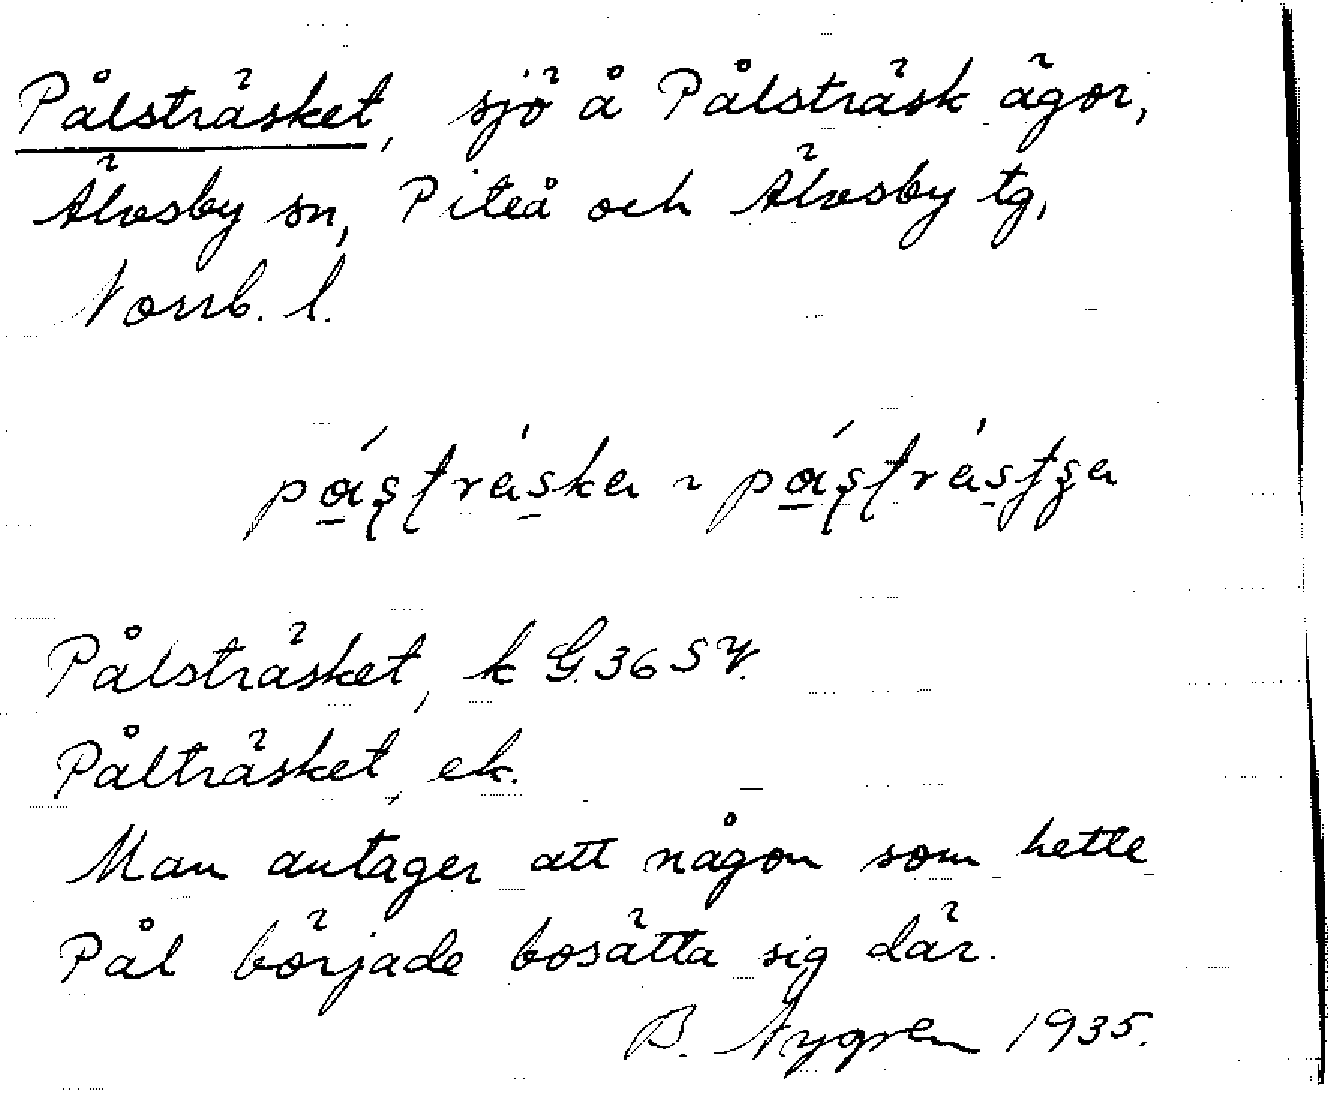 Pålsträsket, sjö å Pålsträsk ägor,
Älvsby sn, Piteå och Älvsby tg,
Norrb. l.
Pålsträsket, k G. 36 SV.
Pålträsket, ek.
Man antager att någon som hette
Pål började bosätta sig där.
B. Nygren 1935.